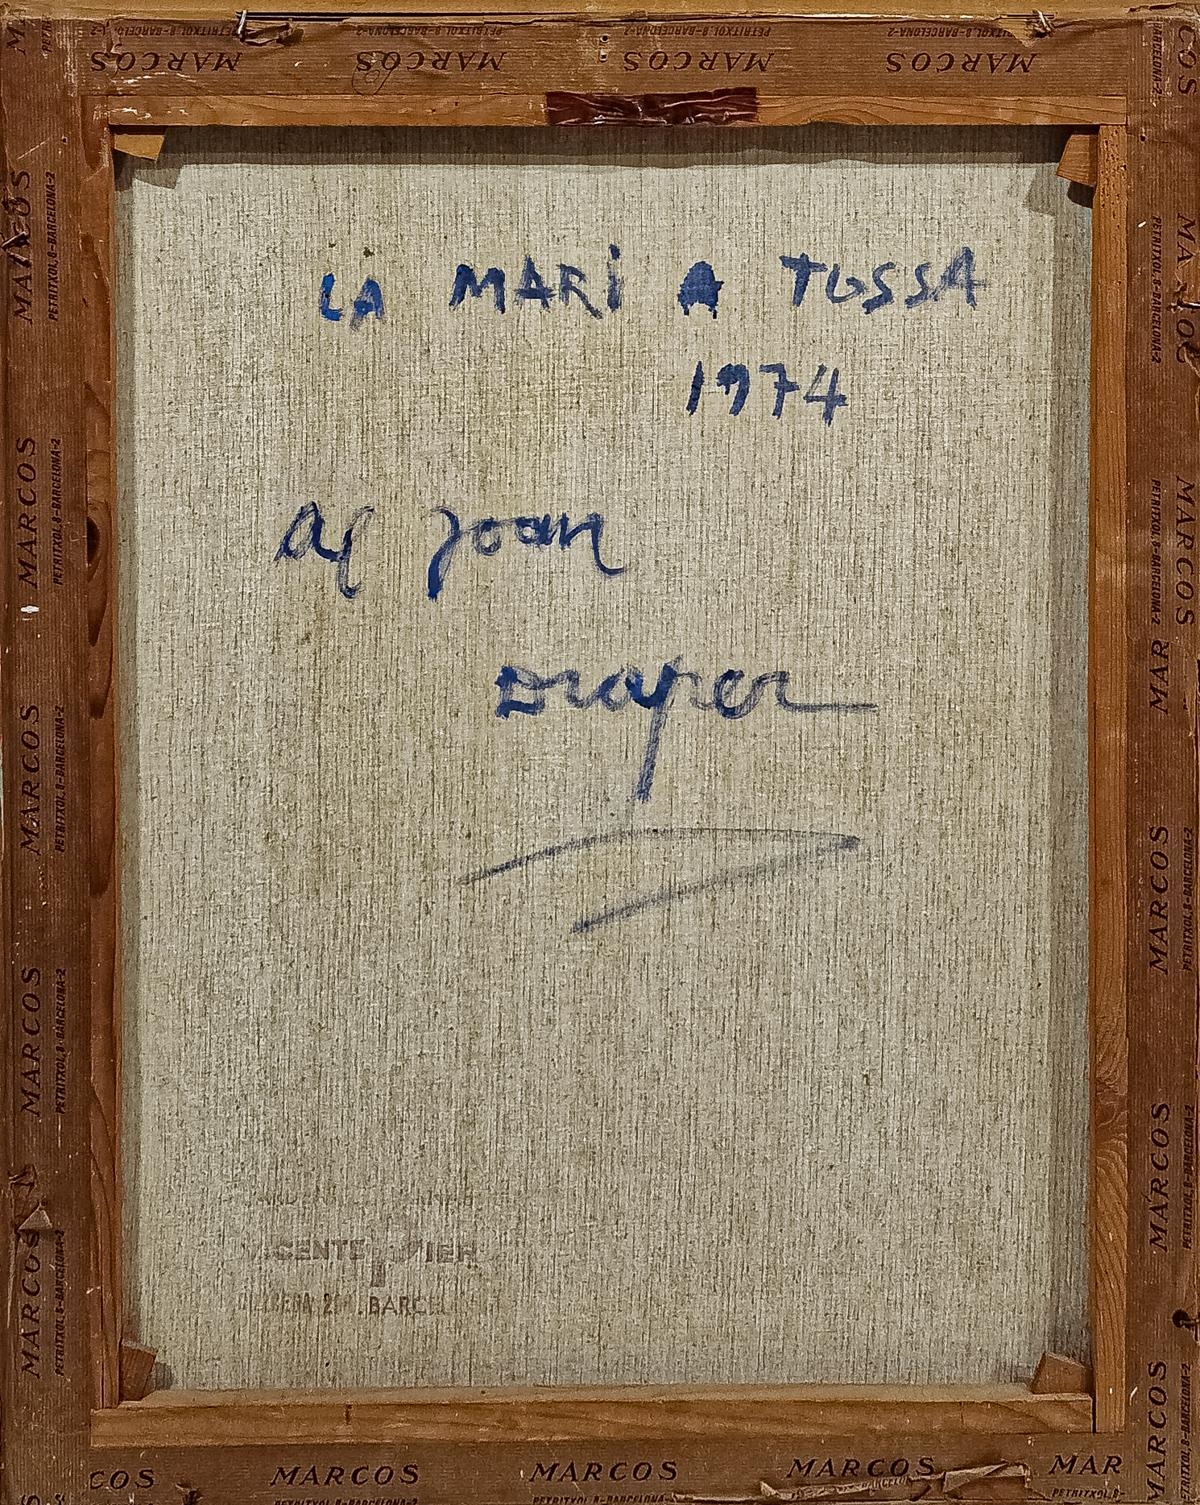 MARCOS MARCOS MARCOS MARCOS
PETRITXOL, 8-BARCELONA-2
LA MARi A TOSSA
1974
Joan
Draper
BARCEL
MARCOS
PETRITXOL, 8-BARCELONA-2
MARCOS
PETRITXOL, 8-BARCELONA-2
MARCOS
PETRITXOL, 8-BARCELONA-2
MARCOS
PETRITXOL, 8-BARCELONA-2
MARCOS
PETRITXOL, 8-BARCELONA-2
PETRITXOL, 8-BARCELONA-2
MARCOS
PETRITXOL, 8-BARCELONA-2
MAR
MARCOS
MARCOS
MARCOS
COS MARCOS MARCOS MARCOS MAR